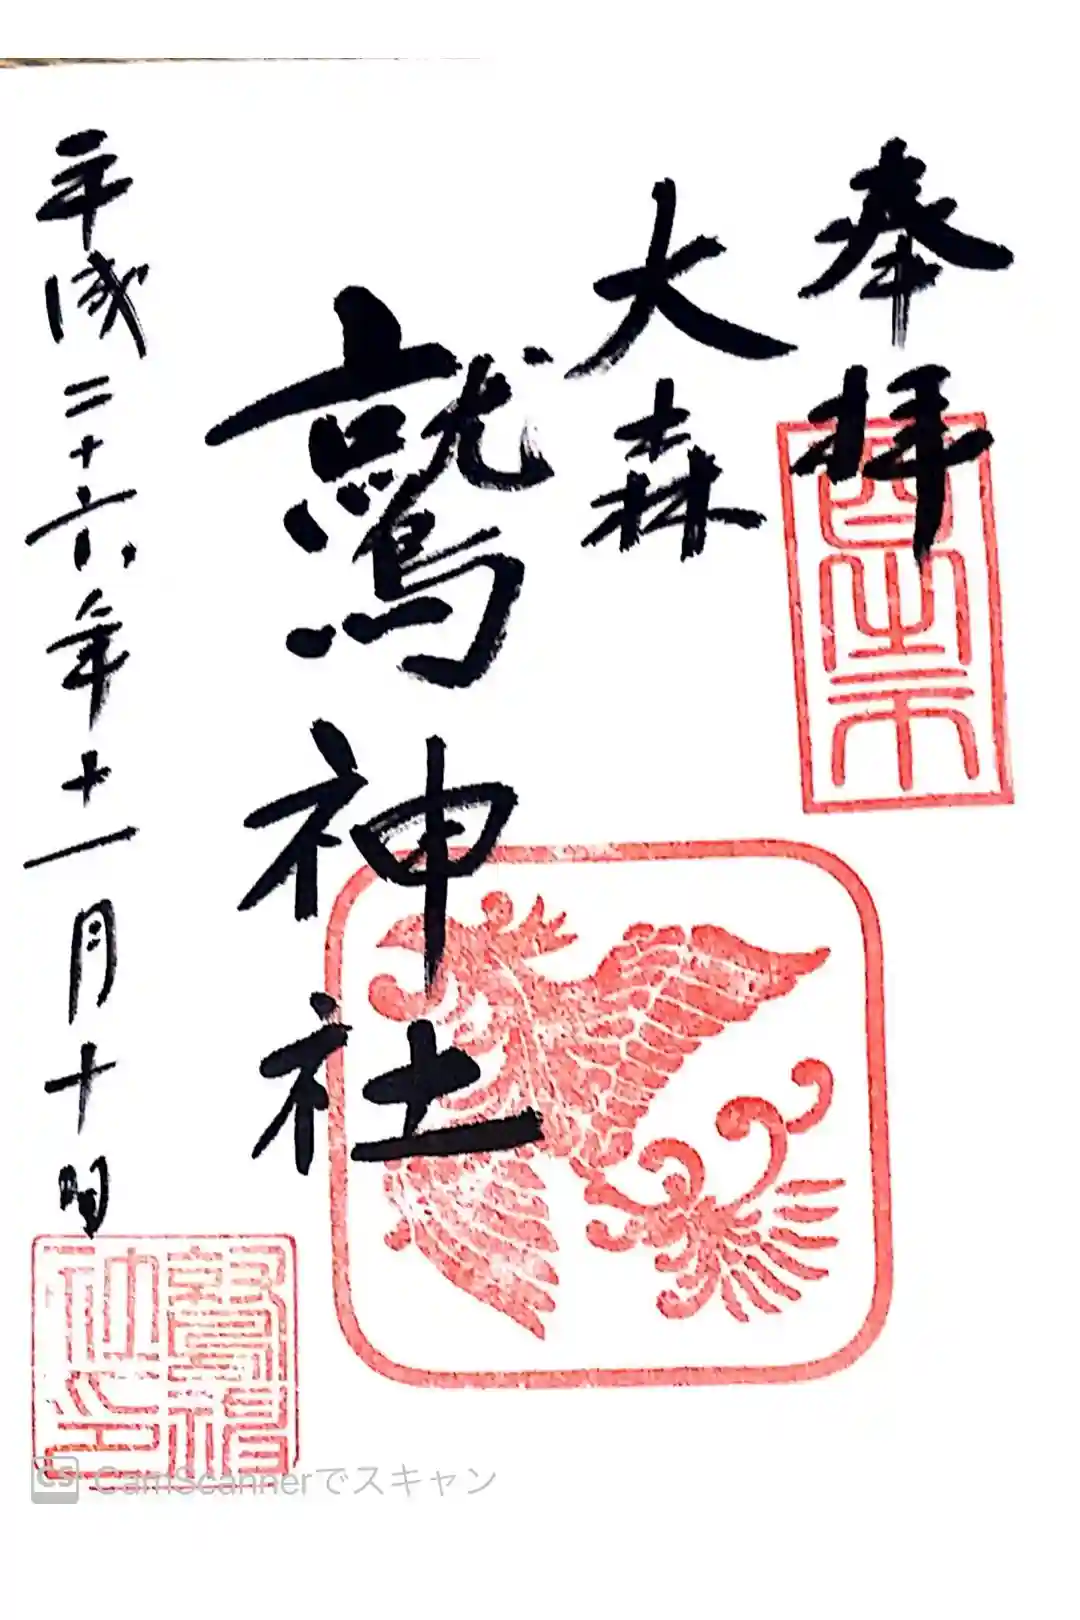 奉拝
大森
鷲神社
平成二十六年十一月十日
CS CamScannerでスキャン